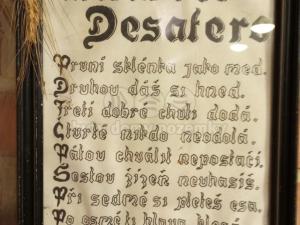 Desatero
První sklénka jako med.
Druhou dáš si hned.
Třetí dobré chuti dodá.
Čtvrté nikdo neodolá.
Pátou chválit nepostačí.
Šestou žízeň neuhasíš.
Při sedmé si pleteš esa.
Po osmé ti hlava klesá